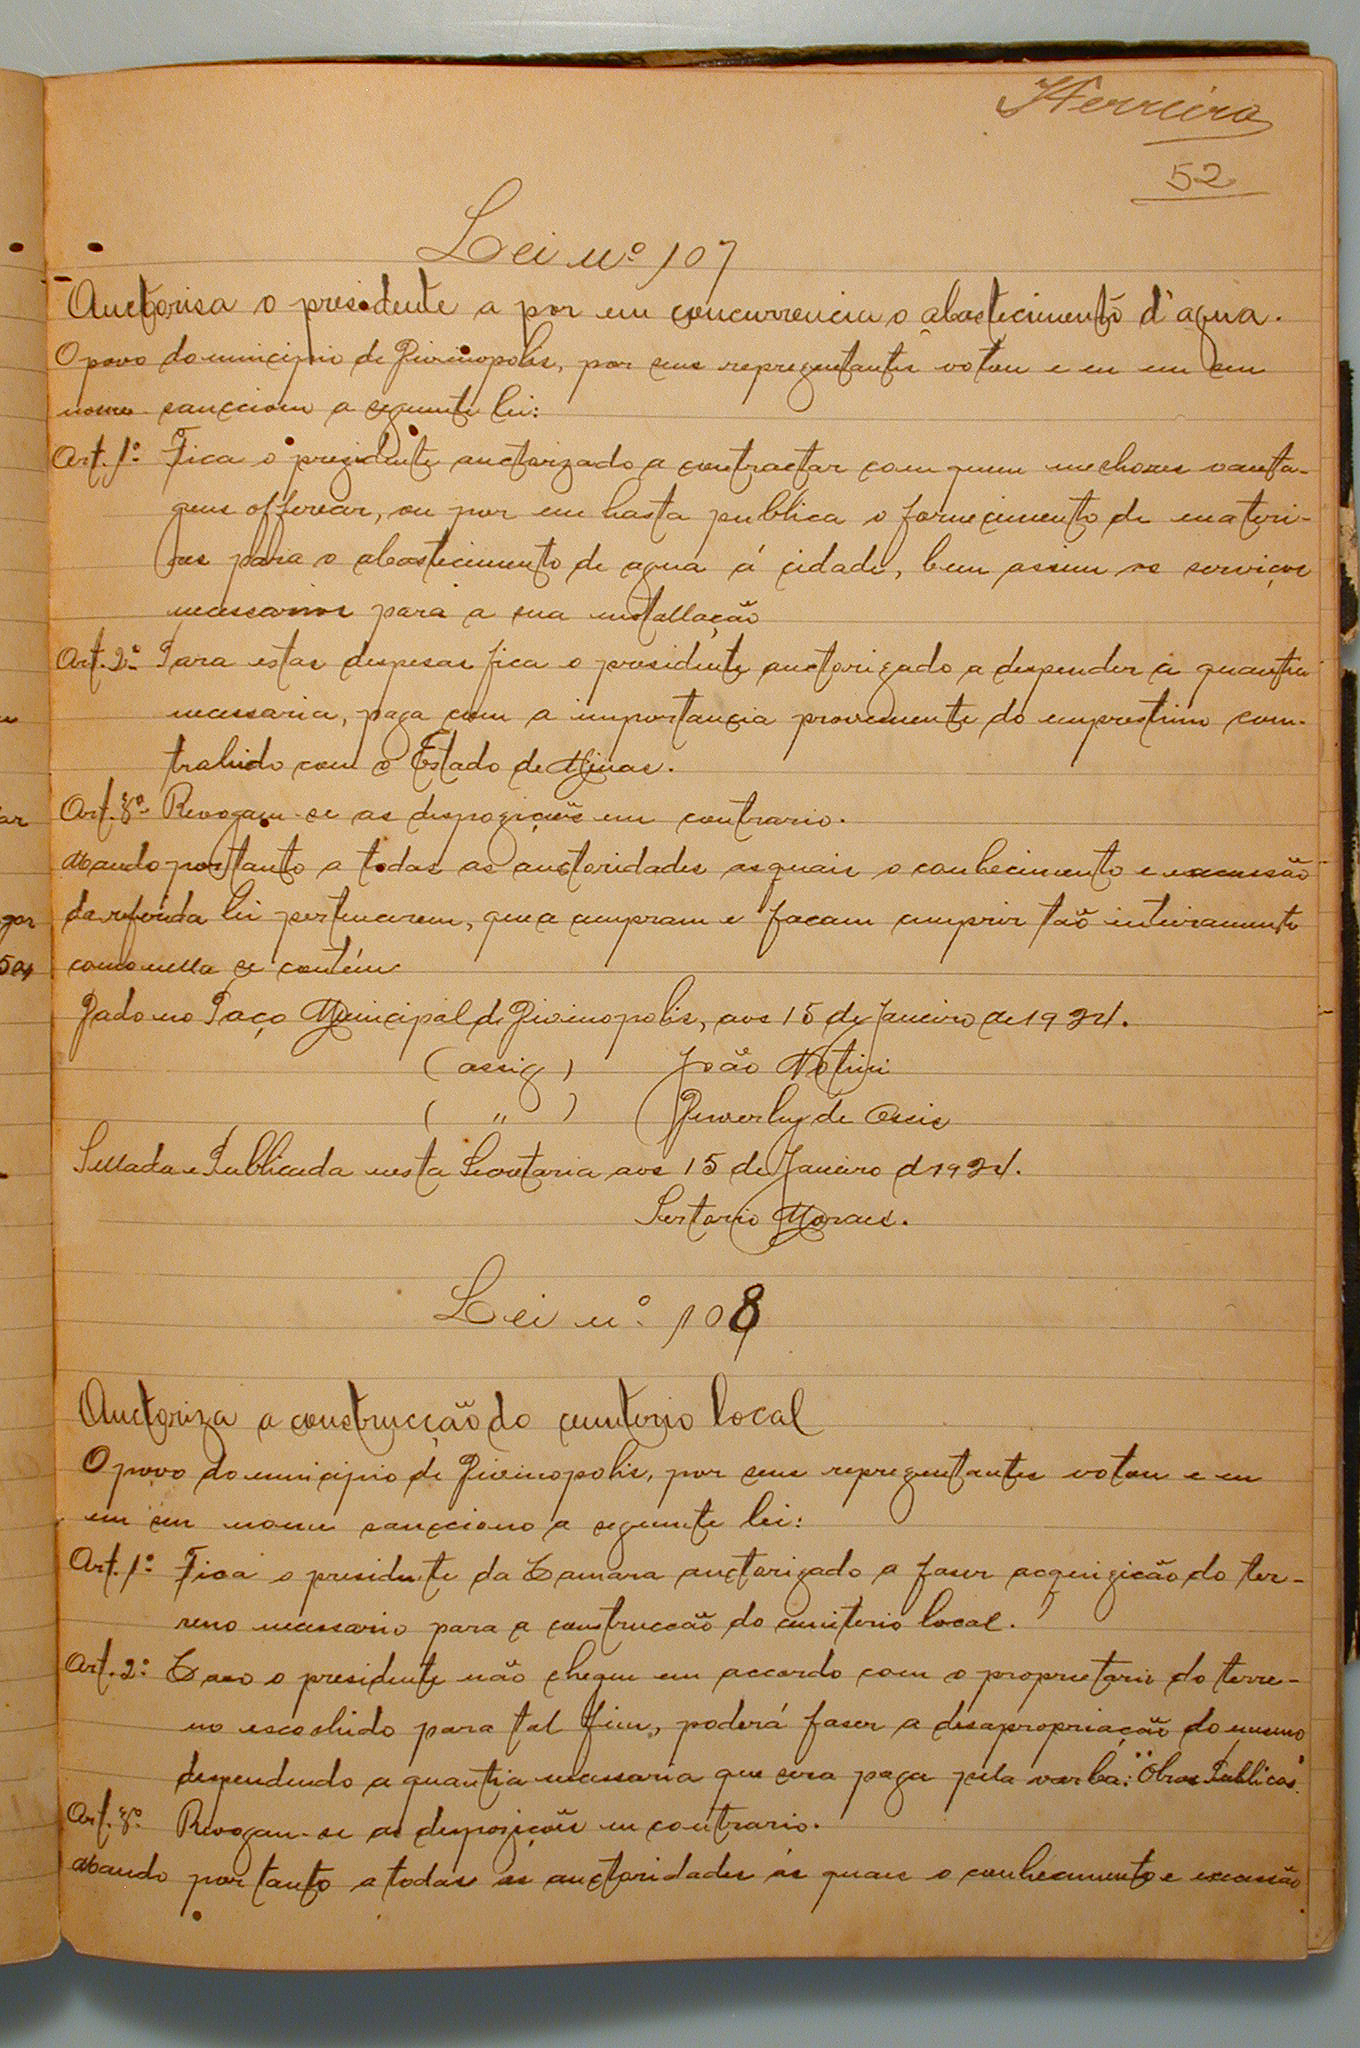 HFerreira
52
Lei nº 107
Auctorisa o presidente a por em concurrencia o abastecimento d'agua.
O povo do municipio de Divinopolis, por seus representantes votou e eu em seu
nome sancciono a seguinte lei:
Art. 1º Fica o prezidente auctorizado a contractar com quem melhores vanta-
gens offerecer, ou por em hasta publica o fornecimento de materi-
aes para o abastecimento de agua á cidade, bem assim os serviços
necessarios para a sua installação
Art. 2º Para estas despesas fica o presidente auctorizado a despender a quantia
necessaria, paga com a importancia proveniente do emprestimo con-
trahido com o Estado de Minas.
Art. 3º Revogam-se as dispozições em contrario.
Mando portanto a todas as auctoridades as quais o conhecimento e execussão
da referida lei pertencerem, que a cumpram e façam cumprir tão inteiramente
como nella se contém
Dado no Paço Municipal de Divinopolis, aos 15 de Janeiro de 1924.
(assig) João Notini
( " ) de Assis
Sellada e Publicada nesta Secretaria aos 15 de Janeiro d 1924.
Sertorio Moraes.
Lei nº 108
Auctoriza a construcção do cemiterio local
O povo do municipio de Divinopolis, por seus reprezentantes votou e eu
em seu nome sancciono a seguinte lei:
Art. 1º Fica o presidente da Camara auctorizado a faser acquizição do ter-
reno necessario para a construcção do cemiterio local.
Art. 2º Caso o presidente não chegue em accordo com o proprietario do terre-
no escolhido para tal fim, poderá faser a desapropriação do mesmo
despendendo a quantia necessaria que sera paga pela verba: "Obras Publicas".
Art. 3º Revogam-se as dispozições em contrario.
Mando portanto a todas as auctoridades ás quaes o conhecimento e execussão